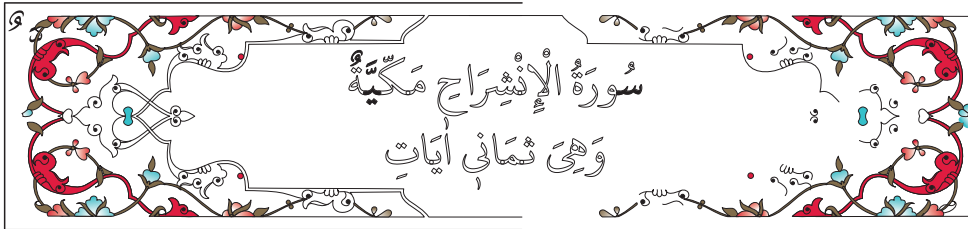 سُورَةُ الْإِنْشِرَاحِ مَكِّيَّةٌ
وَهِىَ ثَمَانِى اٰيَاتٍ